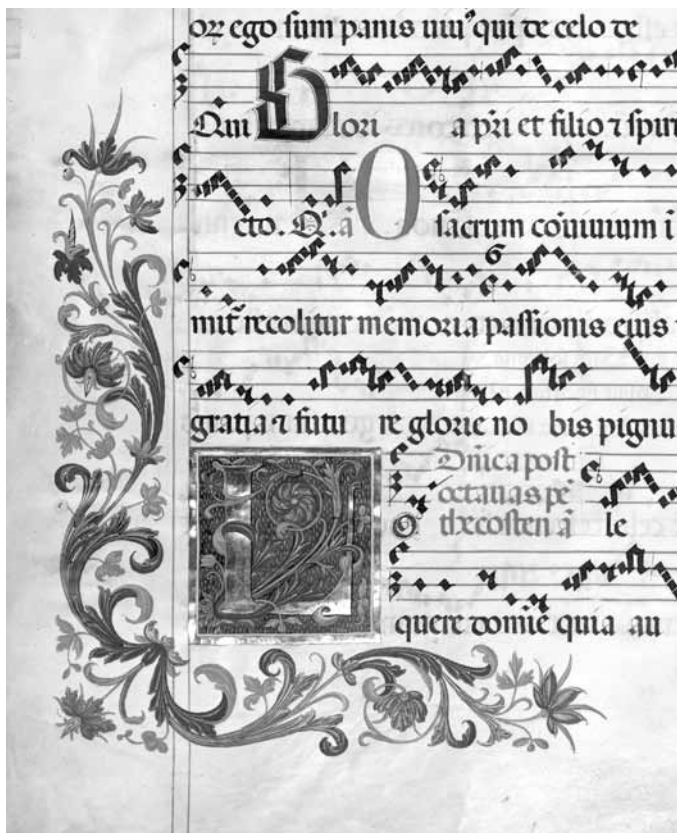 oꝝ ego sum panis uiu⁹ qui de celo de
Qui Glori a p̄ri et filio ⁊ spiri
cto. Q̄. ā O sacrum cōuiuium ī
mit̄ recolitur memoria passionis eius
gratia ⁊ futu re glorie no bis pignu
Dn̄ica post
octauas pē
thecosten ā L le
quere domiē quia au